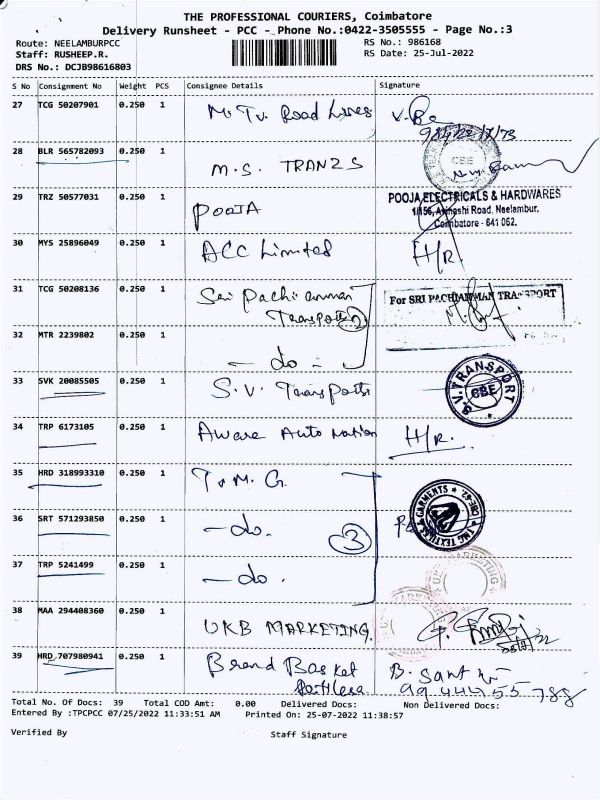 THE PROFESSIONAL COURIERS, Coimbatore
Delivery Runsheet - PCC - Phone No.:0422-3505555 - Page No.:3
Route: NEELAMBURPCC
RS No.: 986168
Staff: RUSHEEP.R.
RS Date: 25-Jul-2022
DRS No.: DCJB98616803
S No Consignment No Weight PCS Consignee Details Signature
27 TCG 50207901 0.250 1 Road Lines
28 BLR 565782093 0.250 1 M.S. TRANZS
CBE
29 TRZ 50577031 0.250 1 POOJA
POOJA ELECTRICALS & HARDWARES
Road, Neelambur.
Coimbatore - 641 062.
30 MYS 25896049 0.250 1 ACC Limited H/R.
31 TCG 50208136 0.250 1 Sri Pachiamman
Transports 2
For SRI PACHIAMMAN TRANSPORT
32 MTR 2239802 0.250 1 - do -
33 SVK 20085505 0.250 1 S.V. Transports
S.V. TRANSPORT
CBE
34 TRP 6173105 0.250 1 Aware Automation H/R.
35 HRD 318993310 0.250 1 T.M.G.
36 SRT 571293850 0.250 1 - do. 3
& GARMENTS
37 TRP 5241499 0.250 1 - do.
38 MAA 294408360 0.250 1 UKB MARKETING.
39 HRD 707980941 0.250 1 Brand Basket
B.
Total No. Of Docs: 39 Total COD Amt: 0.00 Delivered Docs: Non Delivered Docs:
Entered By :TPCPCC 07/25/2022 11:33:51 AM Printed On: 25-07-2022 11:38:57
Verified By Staff Signature